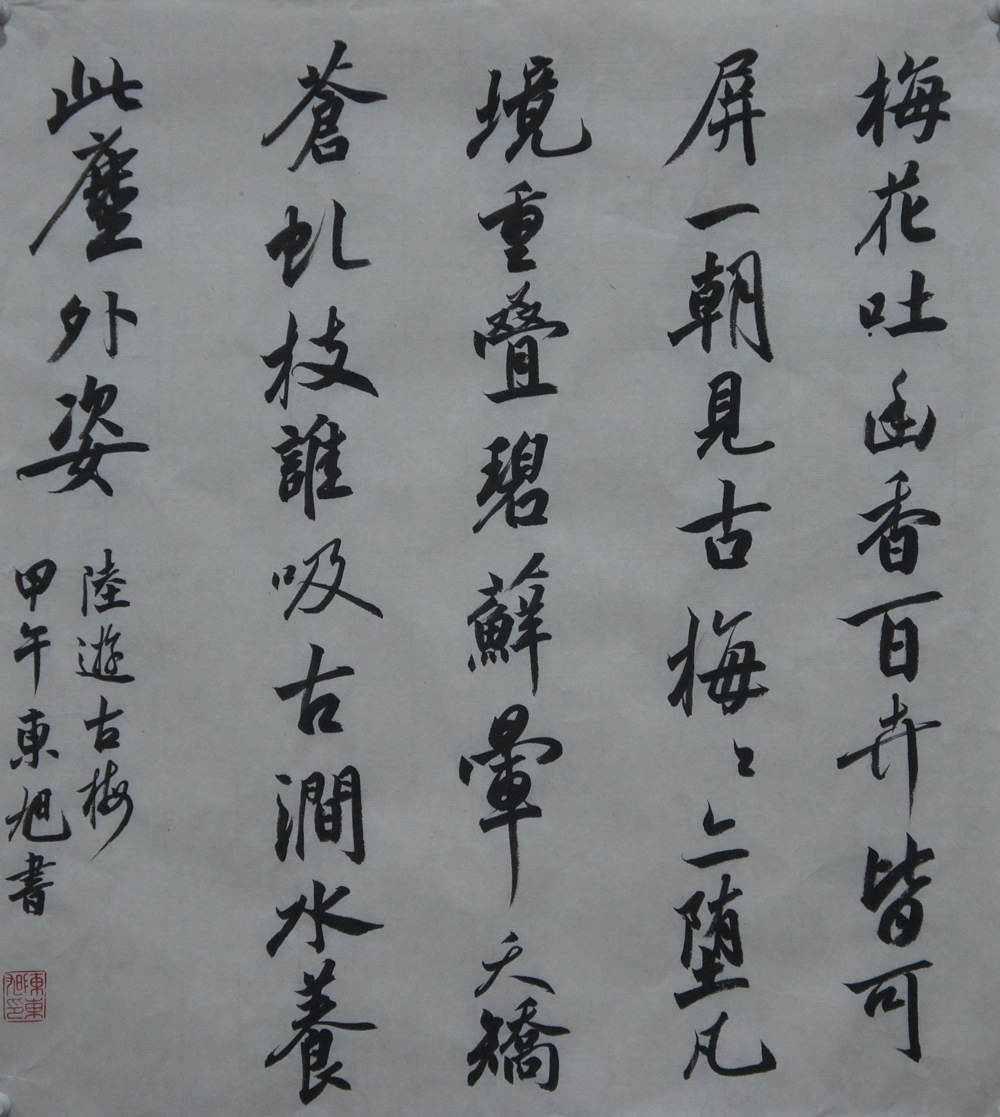 梅花吐幽香百卉皆可
屏一朝見古梅〻亦堕凡
境重疊碧蘚暈夭矯
蒼虬枝誰吸古澗水養
此塵外姿
陸遊古梅
甲午東旭書
陳東旭印